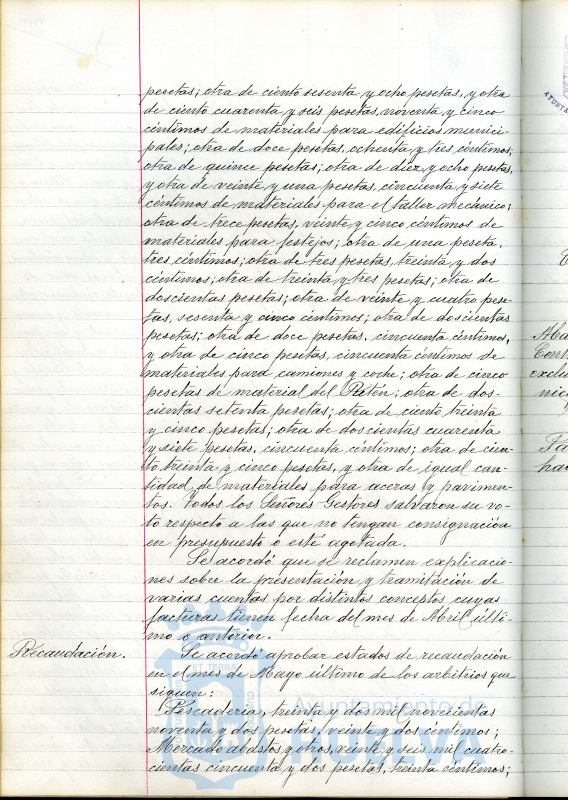 pesetas; otra de ciento sesenta y ocho pesetas, y otra
de ciento cuarenta y seis pesetas, noventa y cinco
céntimos de materiales para edificios munici-
pales; otra de doce pesetas, ochenta y tres céntimos;
otra de quince pesetas; otra de diez y ocho pesetas,
y otra de veinte y una pesetas, cincuenta y siete
céntimos de materiales para el taller mecánico;
otra de trece pesetas, veinte y cinco céntimos de
materiales para festejos; otra de una peseta,
tres céntimos; otra de tres pesetas, treinta y dos
céntimos; otra de treinta y tres pesetas; otra de
doscientas pesetas; otra de veinte y cuatro pese-
tas, sesenta y cinco céntimos; otra de doscientas
pesetas; otra de doce pesetas, cincuenta céntimos,
y otra de cinco pesetas, cincuenta céntimos de
materiales para camiones y coche; otra de cinco
pesetas de material del Retén; otra de dos-
cientas setenta pesetas; otra de ciento treinta
y cinco pesetas; otra de doscientas cuarenta
y siete pesetas, cincuenta céntimos; otra de cien-
to treinta y cinco pesetas, y otra de igual can-
tidad, de materiales para aceras y pavimen-
tos. Todos los Señores Gestores salvaron su vo-
to respecto a las que no tengan consignación
en presupuesto o esté agotada.
Se acordó que se reclamen explicacio-
nes sobre la presentación y tramitación de
varias cuentas por distintos conceptos cuyas
facturas tienen fecha del mes de Abril últi-
mo o anterior.
Recaudación. Se acordó aprobar estados de recaudación
en el mes de Mayo último de los arbitrios que
siguen:
Pescadería, treinta y dos mil novecientas
noventa y dos pesetas, veinte y dos céntimos;
Mercado abastos y otros, veinte y seis mil cuatro-
cientas cincuenta y dos pesetas, treinta céntimos;
ET TERRÆ
Ayuntamiento de
HUELVA